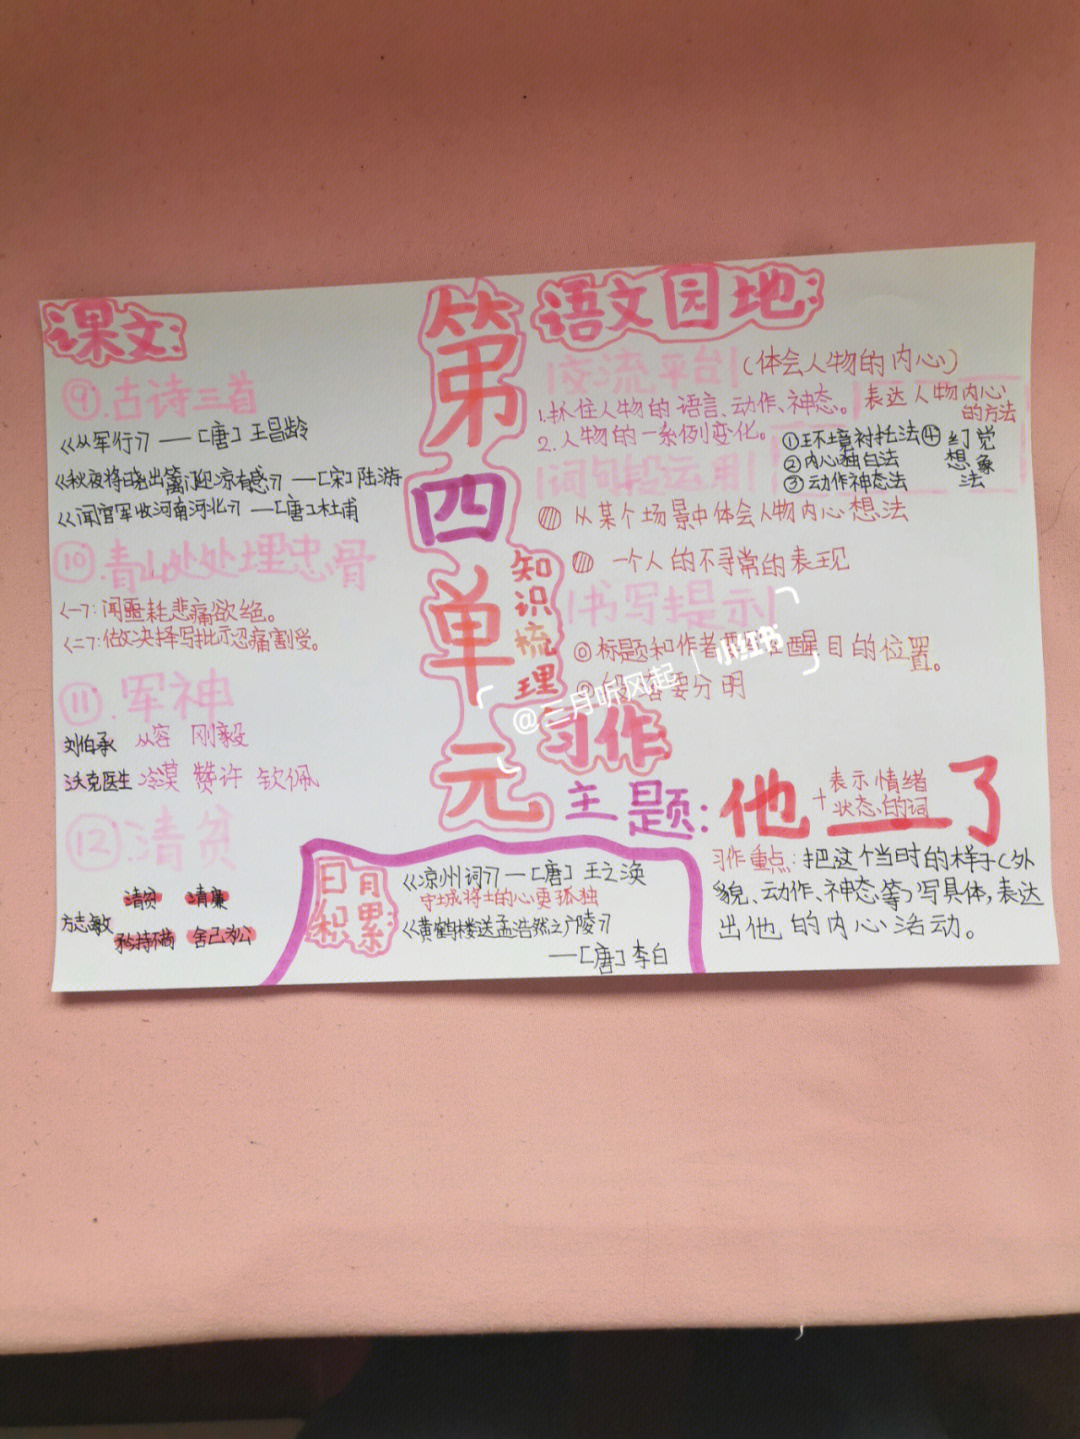 课文:
⑨.古诗三首
《从军行》—[唐]王昌龄
《秋夜将晓出篱门迎凉有感》—[宋]陆游
《闻官军收河南河北》—[唐]杜甫
⑩.青山处处埋忠骨
<一>:闻噩耗悲痛欲绝。
<二>:做决择写批示忍痛割爱。
⑪.军神
刘伯承 从容 刚毅
沃克医生 冷漠 赞许 钦佩
⑫.清贫
方志敏
清贫 清廉
矜持不苟 舍己为公
第四单元
知识梳理
语文园地:
交流平台
(体会人物的内心)
1.抓住人物的语言、动作、神态。
2.人物的一系例变化。
表达人物内心
的方法
①环境衬托法④幻觉
②内心独白法 想象
③动作神态法 法
词句段运用
从某个场景中体会人物内心想法
一个人的不寻常的表现
书写提示
◎标题和作者 醒目的位置。
要分明
@二月听风起
小红书
习作
主题:他____了
+表示情绪
状态的词
习作重点:把这个当时的样子(外
貌、动作、神态等)写具体,表达
出他的内心活动。
日月积累:
《凉州词》—[唐]王之涣
守城将士的心更孤独
《黄鹤楼送孟浩然之广陵》
—[唐]李白